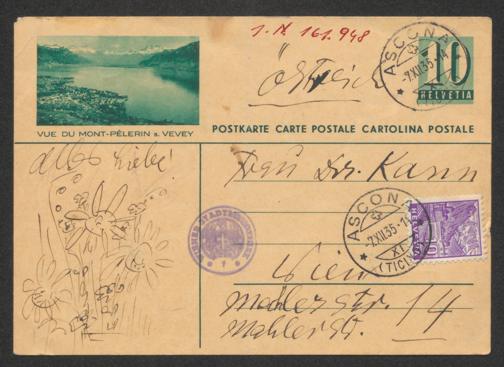 J.N. 161.948
ASCONA
-7.XII.35.-14
XI
(TICINO)
10
HELVETIA
VUE DU MONT-PÈLERIN s. VEVEY
POSTKARTE CARTE POSTALE CARTOLINA POSTALE
alles Liebe!
Frau Dr. Kann
ASCONA
-7.XII.35-1
XI
(TICINO)
10
HELVETIA
Wien
Mahlerstr. 14
Mahlerstr.